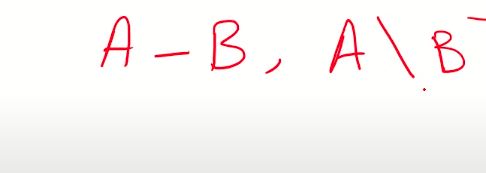 A - B, A \ B